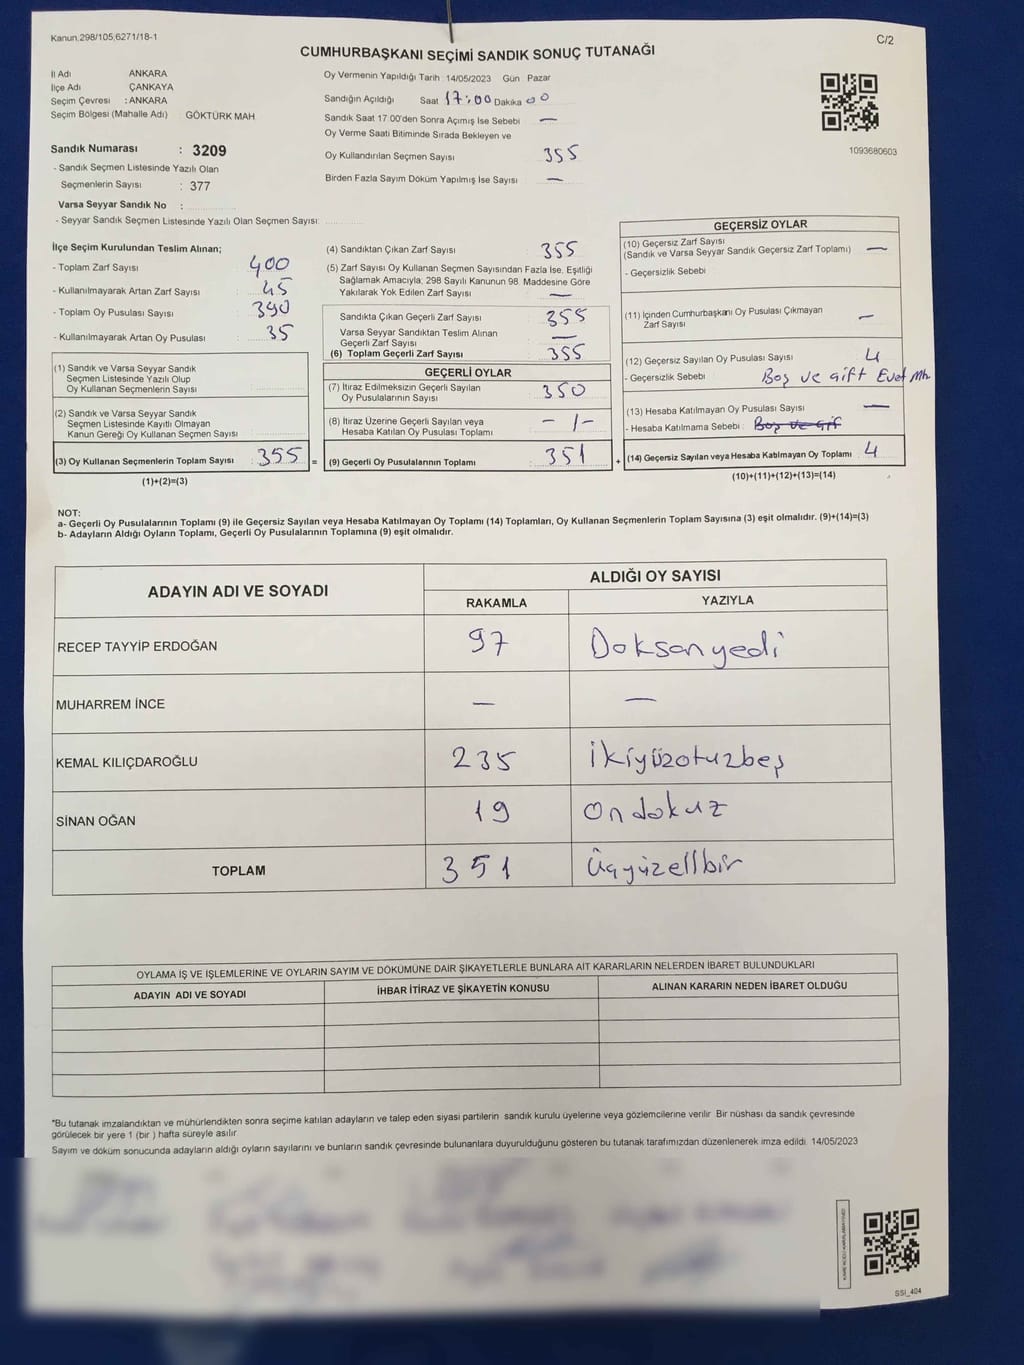 Kanun.298/105;6271/18-1
C/2
CUMHURBAŞKANI SEÇİMİ SANDIK SONUÇ TUTANAĞI
İl Adı ANKARA
İlçe Adı ÇANKAYA
Seçim Çevresi : ANKARA
Seçim Bölgesi (Mahalle Adı) GÖKTÜRK MAH
Sandık Numarası : 3209
- Sandık Seçmen Listesinde Yazılı Olan
Seçmenlerin Sayısı : 377
Varsa Seyyar Sandık No :
- Seyyar Sandık Seçmen Listesinde Yazılı Olan Seçmen Sayısı:
Oy Vermenin Yapıldığı Tarih : 14/05/2023 Gün Pazar
Sandığın Açıldığı Saat 17:00 Dakika 00
Sandık Saat 17.00'den Sonra Açımış İse Sebebi —
Oy Verme Saati Bitiminde Sırada Bekleyen ve
Oy Kullandırılan Seçmen Sayısı 355
Birden Fazla Sayım Döküm Yapılmış İse Sayısı —
1093680603
İlçe Seçim Kurulundan Teslim Alınan;
- Toplam Zarf Sayısı 400
- Kullanılmayarak Artan Zarf Sayısı 45
- Toplam Oy Pusulası Sayısı 390
- Kullanılmayarak Artan Oy Pusulası 35
(1) Sandık ve Varsa Seyyar Sandık
Seçmen Listesinde Yazılı Olup
Oy Kullanan Seçmenlerin Sayısı
(2) Sandık ve Varsa Seyyar Sandık
Seçmen Listesinde Kayıtlı Olmayan
Kanun Gereği Oy Kullanan Seçmen Sayısı
(3) Oy Kullanan Seçmenlerin Toplam Sayısı 355 =
(1)+(2)=(3)
(4) Sandıktan Çıkan Zarf Sayısı 355
(5) Zarf Sayısı Oy Kullanan Seçmen Sayısından Fazla İse, Eşitliği
Sağlamak Amacıyla, 298 Sayılı Kanunun 98. Maddesine Göre
Yakılarak Yok Edilen Zarf Sayısı —
Sandıkta Çıkan Geçerli Zarf Sayısı 355
Varsa Seyyar Sandıktan Teslim Alınan
Geçerli Zarf Sayısı —
(6) Toplam Geçerli Zarf Sayısı 355
GEÇERLİ OYLAR
(7) İtiraz Edilmeksizin Geçerli Sayılan
Oy Pusulalarının Sayısı 350
(8) İtiraz Üzerine Geçerli Sayılan veya
Hesaba Katılan Oy Pusulası Toplamı -1-
(9) Geçerli Oy Pusulalarının Toplamı 351 +
GEÇERSİZ OYLAR
(10) Geçersiz Zarf Sayısı
(Sandık ve Varsa Seyyar Sandık Geçersiz Zarf Toplamı) —
- Geçersizlik Sebebi
(11) İçinden Cumhurbaşkanı Oy Pusulası Çıkmayan
Zarf Sayısı —
(12) Geçersiz Sayılan Oy Pusulası Sayısı 4
- Geçersizlik Sebebi Boş ve Çift Evet Mh.
(13) Hesaba Katılmayan Oy Pusulası Sayısı —
- Hesaba Katılmama Sebebi : Boş ve Çif
(14) Geçersiz Sayılan veya Hesaba Katılmayan Oy Toplamı 4
(10)+(11)+(12)+(13)=(14)
NOT:
a- Geçerli Oy Pusulalarının Toplamı (9) ile Geçersiz Sayılan veya Hesaba Katılmayan Oy Toplamı (14) Toplamları, Oy Kullanan Seçmenlerin Toplam Sayısına (3) eşit olmalıdır. (9)+(14)=(3)
b- Adayların Aldığı Oyların Toplamı, Geçerli Oy Pusulalarının Toplamına (9) eşit olmalıdır.
ADAYIN ADI VE SOYADI ALDIĞI OY SAYISI
RAKAMLA YAZIYLA
RECEP TAYYİP ERDOĞAN 97 Doksanyedi
MUHARREM İNCE — —
KEMAL KILIÇDAROĞLU 235 İkiyüzotuzbeş
SİNAN OĞAN 19 Ondokuz
TOPLAM 351 Üçyüzellbir
OYLAMA İŞ VE İŞLEMLERİNE VE OYLARIN SAYIM VE DÖKÜMÜNE DAİR ŞİKAYETLERLE BUNLARA AİT KARARLARIN NELERDEN İBARET BULUNDUKLARI
ADAYIN ADI VE SOYADI İHBAR İTİRAZ VE ŞİKAYETİN KONUSU ALINAN KARARIN NEDEN İBARET OLDUĞU
*Bu tutanak imzalandıktan ve mühürlendikten sonra seçime katılan adayların ve talep eden siyasi partilerin sandık kurulu üyelerine veya gözlemcilerine verilir. Bir nüshası da sandık çevresinde
görülecek bir yere 1 (bir) hafta süreyle asılır
Sayım ve döküm sonucunda adayların aldığı oyların sayılarını ve bunların sandık çevresinde bulunanlara duyurulduğunu gösteren bu tutanak tarafımızdan düzenlenerek imza edildi. 14/05/2023
SSI_404